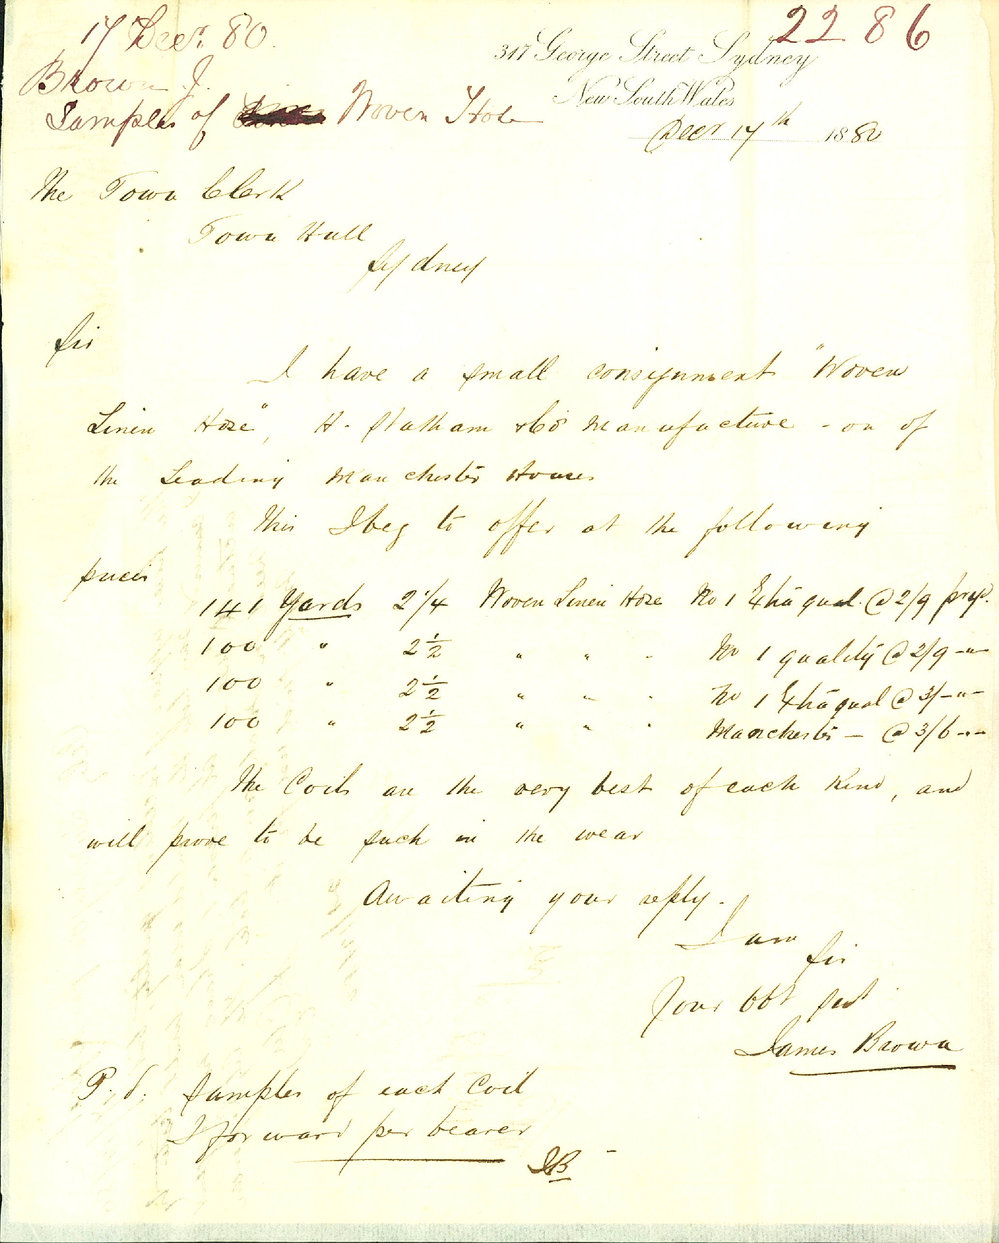 17 Decr. 80.
2286
Brown J.
Samples of Woven Hose
317 George Street Sydney
New South Wales
Decr 17th 1880
The Town Clerk
Town Hall
Sydney
Sir
I have a small consignment "Woven
Linen Hose", H. Statham & Co manufacture - on of
the Leading Manchester Houses
This I beg to offer at the following
prices
141 Yards 2 1/4 Woven Linen Hose No 1 Extra qual. @ 2/9 pr yd.
100 " 2 1/2 " " " No 1 quality @ 2/9 - " -
100 " 2 1/2 " " " No 1 Extra qual @ 3/- " -
100 " 2 1/2 " " " Manchester - @ 3/6 - " -
The Coils are the very best of each kind, and
will prove to be such in the wear
Awaiting your reply.
I am
Sir
Your Obt Sevt
James Brown
P.S. Samples of each Coil
I forward per bearer
JB